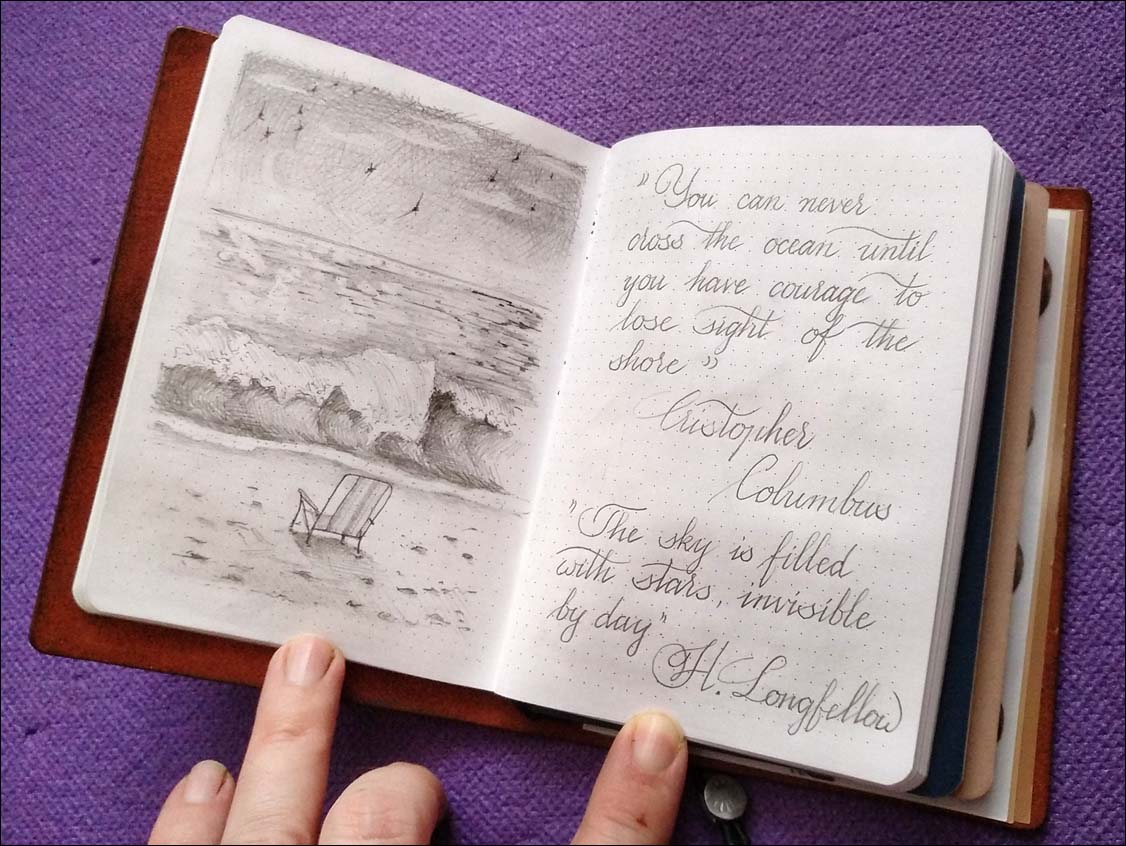 "You can never
cross the ocean until
you have courage to
lose sight of the
shore"
Cristopher
Columbus
"The sky is filled
with stars, invisible
by day".
H. Longfellow